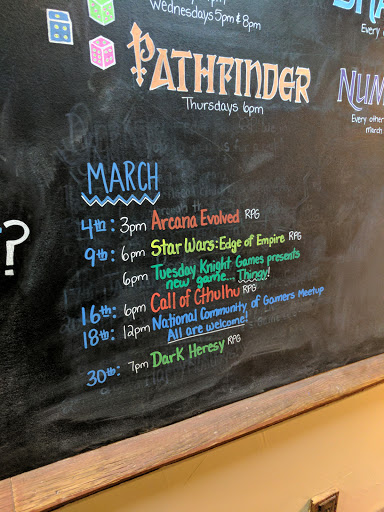 Wednesdays 5pm & 8pm
PATHFINDER
Thursdays 6pm
Every
NUM
Every other
march
MARCH
4th: 3pm Arcana Evolved RPG
9th: 6pm Star Wars: Edge of Empire RPG
6pm Tuesday Knight Games presents
new game... Thingy!
16th: 6pm Call of Cthulhu RPG
18th: 12pm National Community of Gamers Meetup
All are welcome!
30th: 7pm Dark Heresy RPG
?